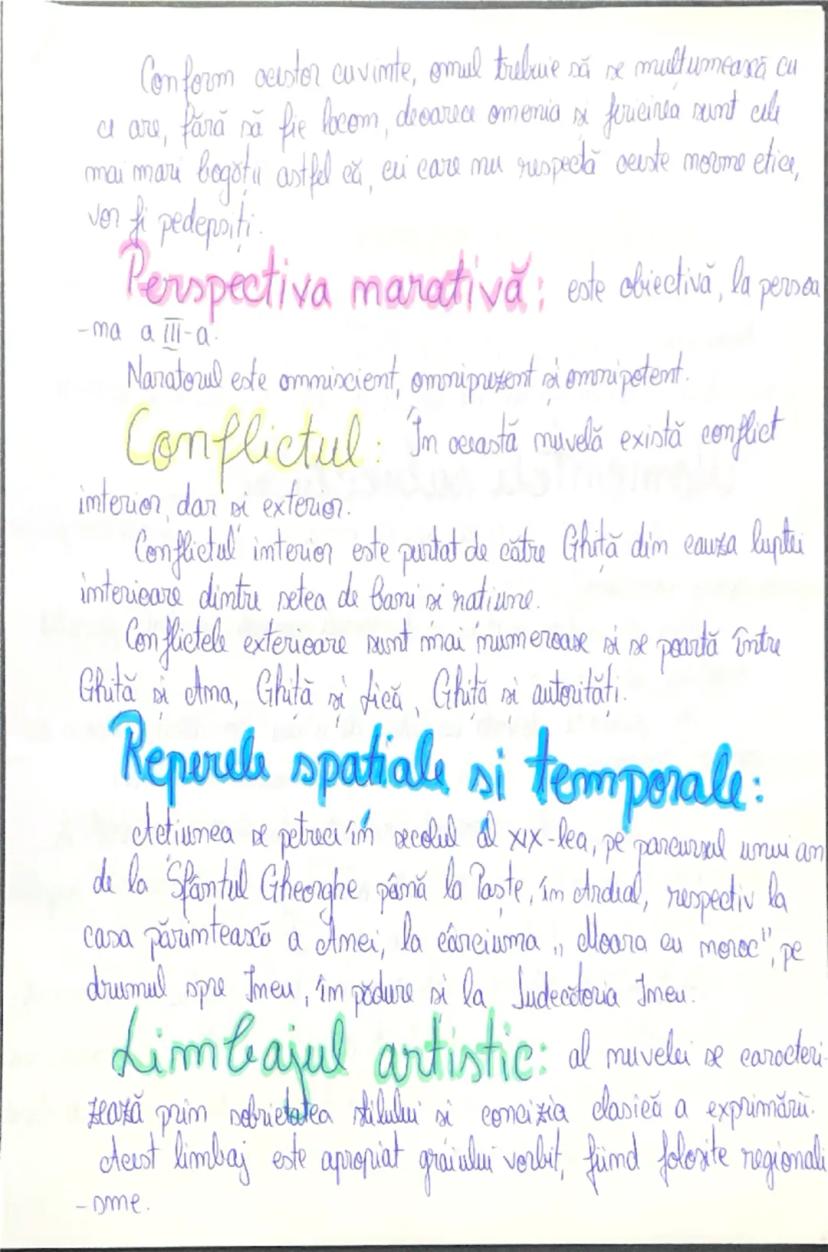 Conform acestor cuvinte, omul trebuie să se mulțumească cu
ce are, fără să fie lacom, deoarece omenia si fericirea sunt cele
mai mari bogății astfel că, cei care nu respectă aceste norme etice,
vor fi pedepsiți.
Perspectiva narativă: este obiectivă, la persoa
-na a III-a.
Naratorul este omniscient, omniprezent si omnipotent.
Conflictul: În această nuvelă există conflict
interior, dar si exterior.
Conflictul interior este purtat de către Ghiță din cauza luptei
interioare dintre setea de bani si ratiune.
Conflictele exterioare sunt mai numeroase si se poartă între
Ghiță si Ana, Ghiță si Lică, Ghiță si autorități.
Reperele spatiale si temporale:
Actiunea se petrece în secolul al XIX-lea, pe parcursul unui an
de la Sfântul Gheorghe până la Paște, în Ardeal, respectiv la
casa părintească a Anei, la cârciuma ,, Moara cu noroc", pe
drumul spre Ineu, în pădure si la Judecătoria Ineu.
Limbajul artistic: al nuvelei se caracteri-
zează prin sobrietatea stilului si concizia clasică a exprimării.
Acest limbaj este apropiat graiului vorbit, fiind folosite regionali
-sme.